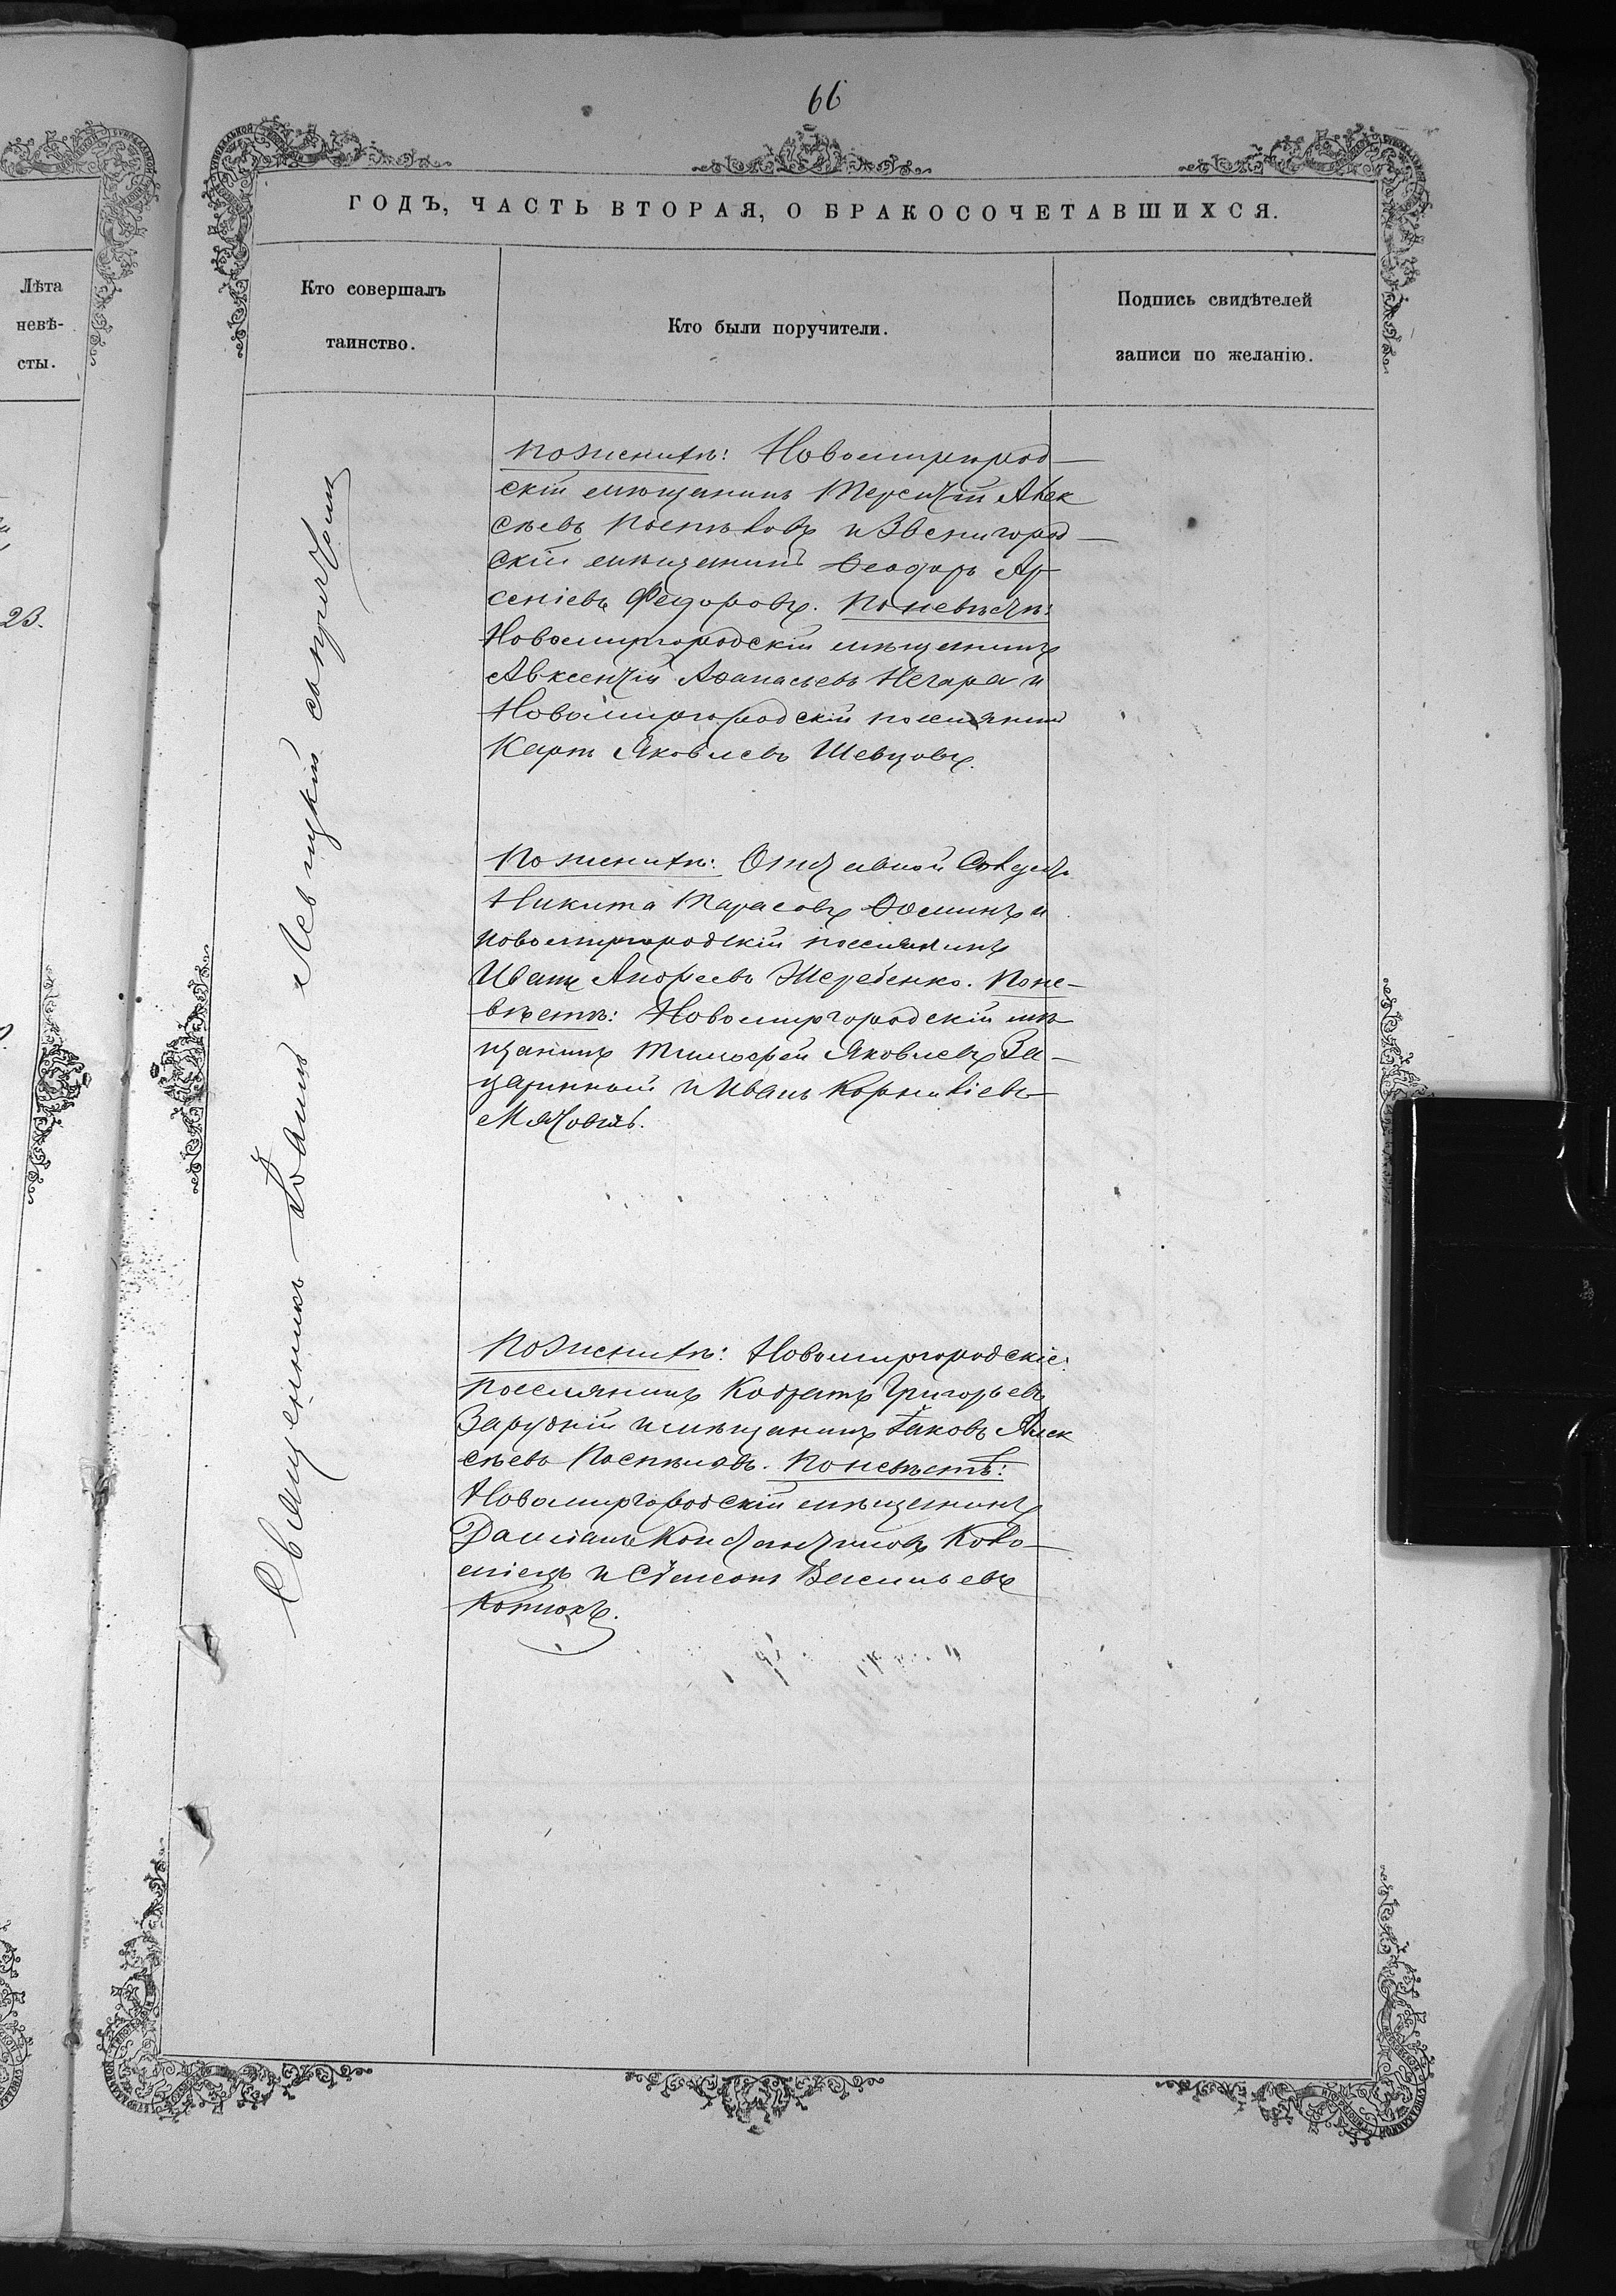 66
ГОДЪ, ЧАСТЬ ВТОРАЯ, О БРАКОСОЧЕТАВШИХСЯ.
Лѣта
невѣ-
сты.
23.
Кто совершалъ
таинство.
Кто были поручители.
Подпись свидѣтелей
записи по желанію.
Священникъ Іоаннъ Левицкій съ причтомъ
По женихѣ: Новомиргород-
скій мѣщанинъ Терентій Алек
сѣевъ Поспѣловъ и Звенигород-
скій мѣщанинъ Ѳеодоръ Ар-
сеніевъ Федоровъ. По невѣстѣ:
Новомиргородскій мѣщанинъ
Авксентій Аѳанасьевъ Негара и
Новомиргородскій поселянинъ
Карпъ Яковлевъ Шевцовъ.
По женихѣ: Отставной Солдатъ
Никита Тарасовъ Ѳоминъ и
новомиргородскій поселянинъ
Иванъ Андреевъ Жеребенко. По не-
вѣстѣ: Новомиргородскій мѣ
щанинъ Тимоѳей Яковлевъ За-
царинной и Иванъ Корниліевъ
По женихѣ: Новомиргородскіе:
поселянинъ Кодратъ Григорьевъ
Зарудній и мѣщанинъ Іаковъ Алек
сѣевъ Поспѣловъ. По невѣстѣ:
Новомиргородскій мѣщанинъ
Даміанъ Константиновъ Коло-
міецъ и Сѵмеонъ Васильевъ
Котюкъ.